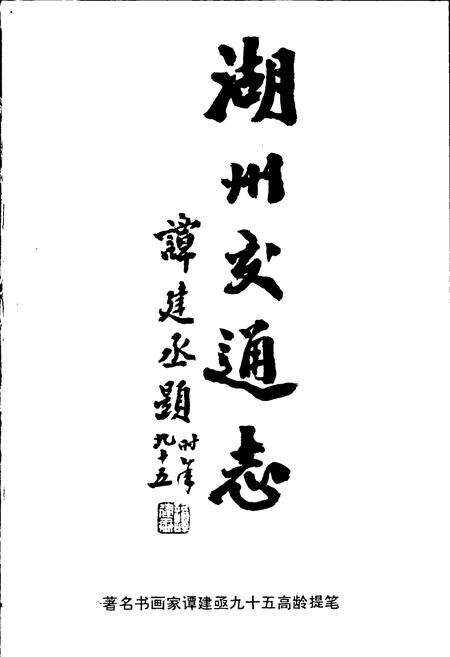 湖州交通志
譚建丞題
时年
九十五
著名书画家谭建亟九十五高龄提笔